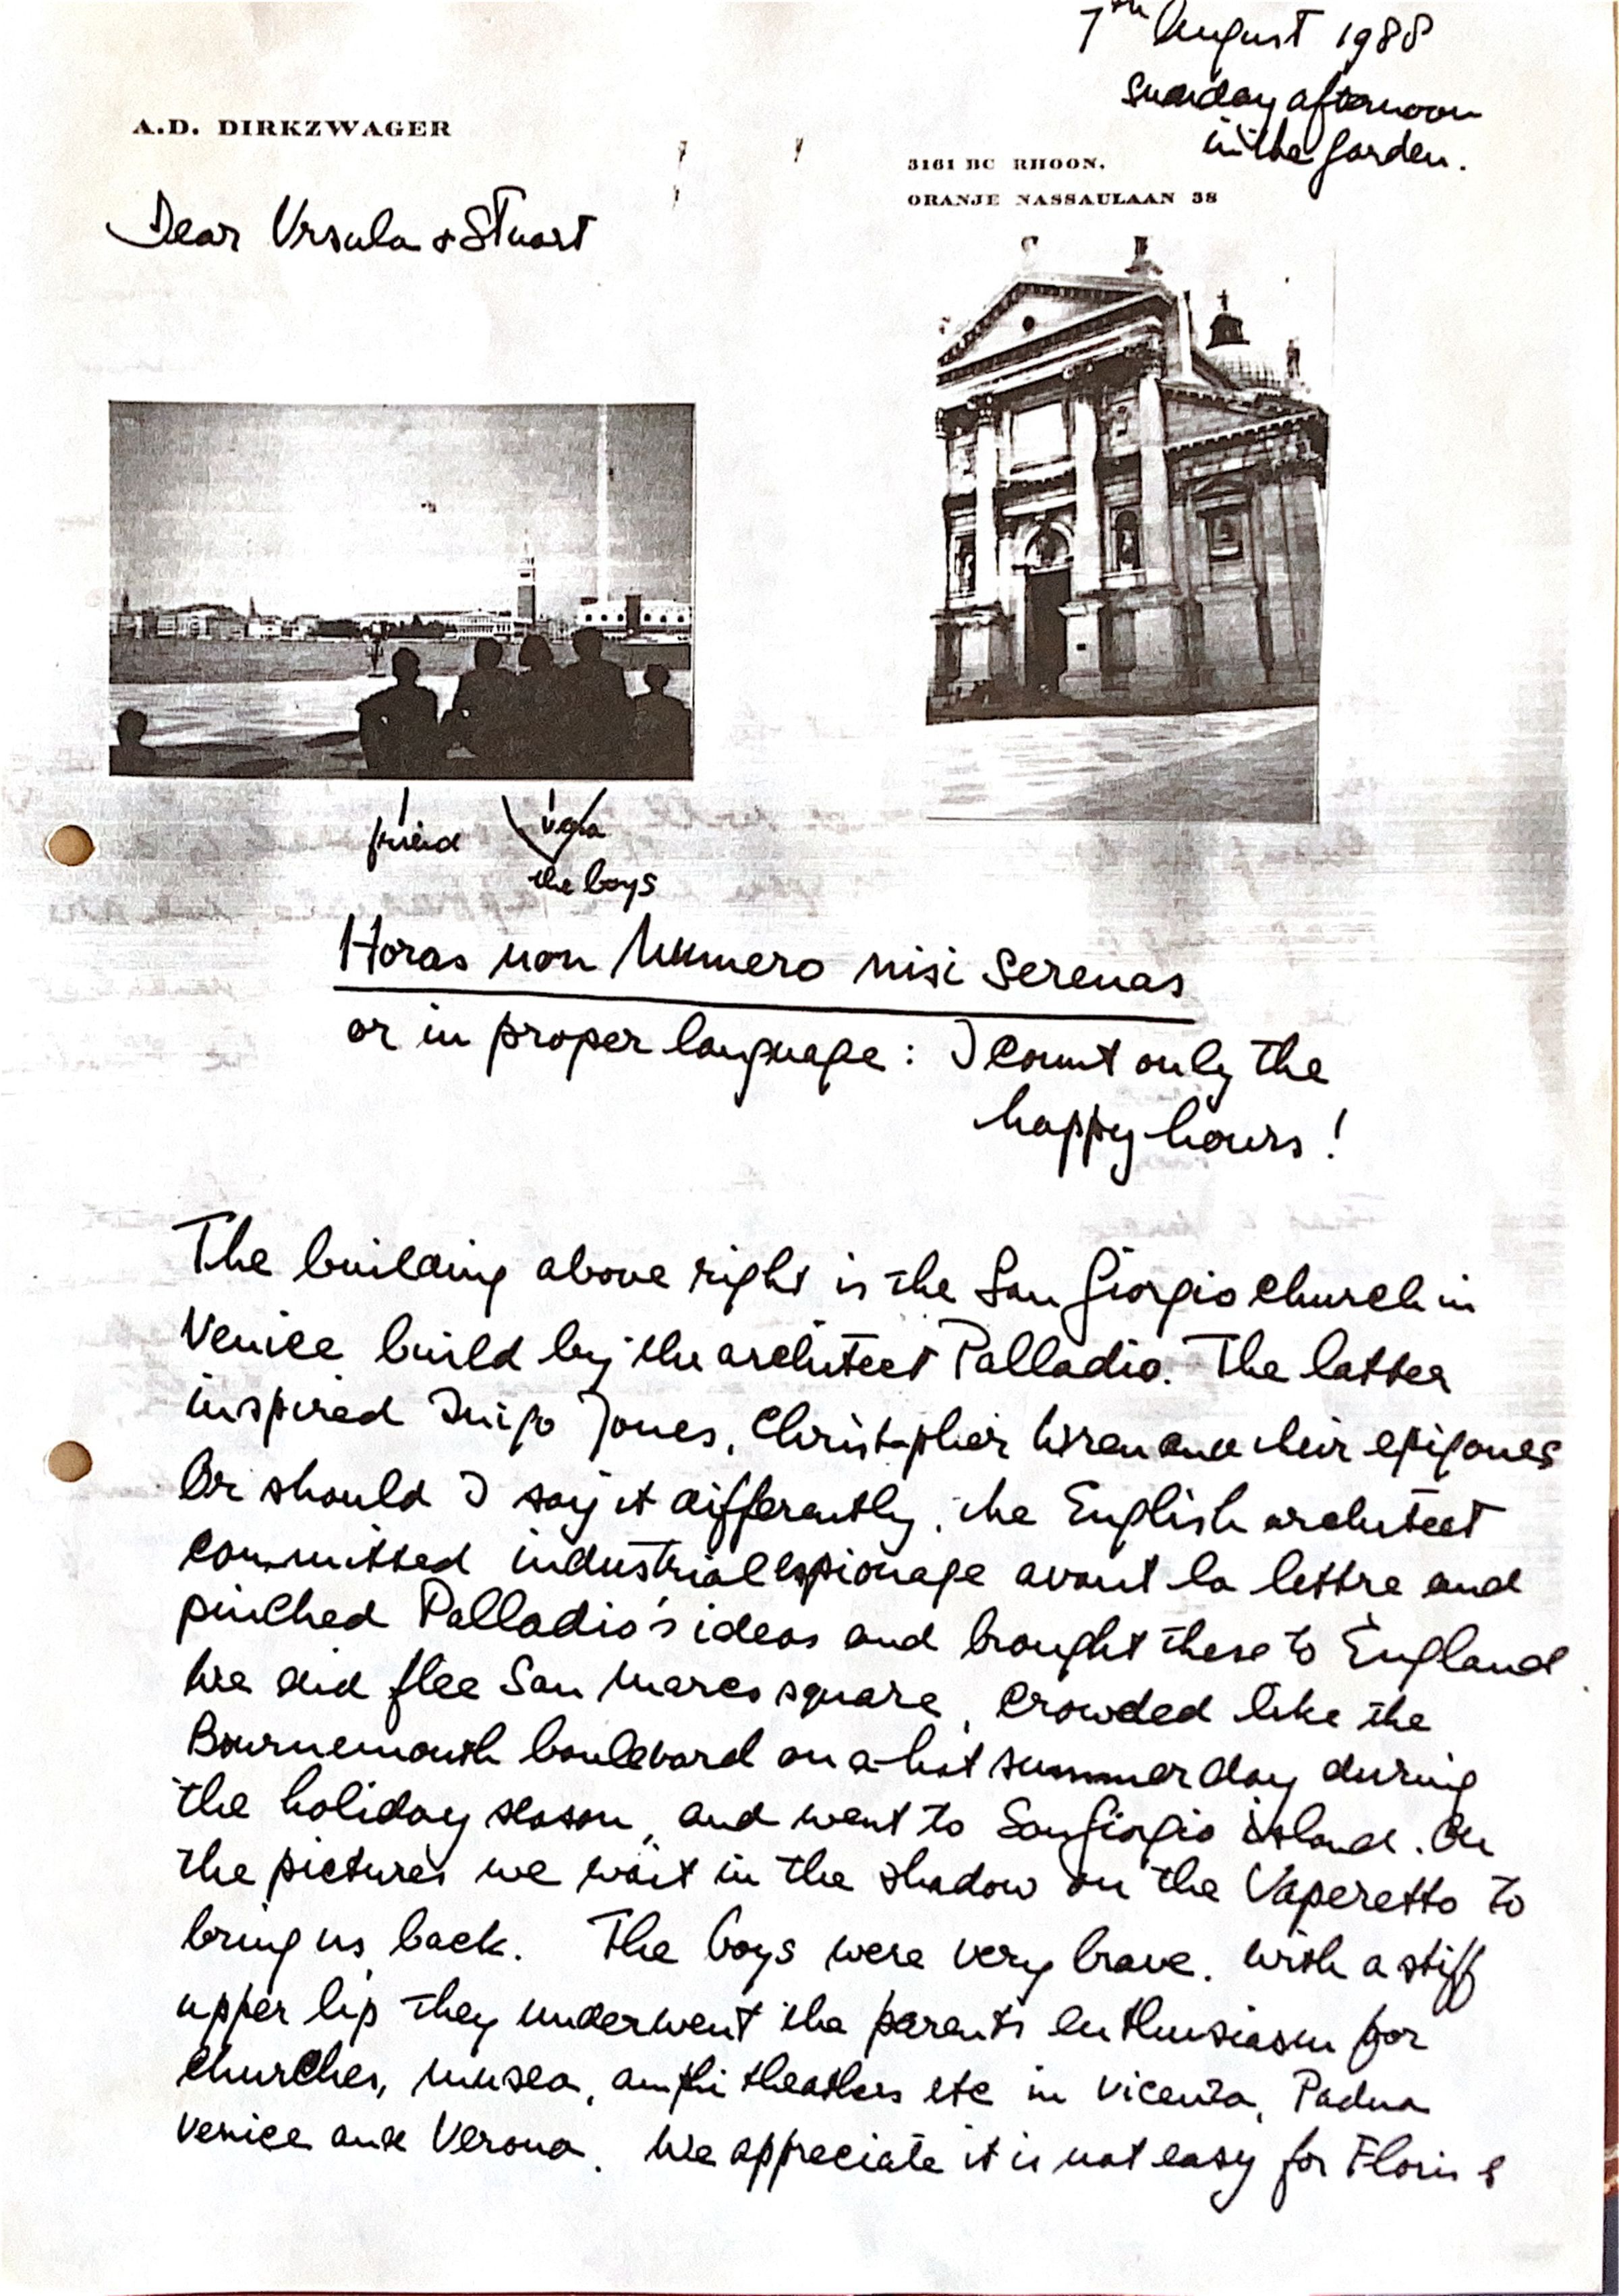 7th August 1988
sunday afternoon
in the garden.
A.D. DIRKZWAGER
3161 BC RHOON.
ORANJE NASSAULAAN 38
Dear Ursula & Stuart
the boys
Horas non Numero nisi serenas
or in proper language: I count only the
happy hours!
The building above right is the San Giorgio church in
Venice build by the architect Palladio. The latter
inspired Inigo Jones, Christopher Wren and their epigones
Or should I say it differently, the English architect
committed industrial espionage avant la lettre and
pinched Palladio's ideas and brought these to England
We did flee San Marco square, crowded like the
Bournemouth boulevard on a hot summer day during
the holiday season, and went to San Giorgio island. On
the pictures we wait in the shadow on the Vaperetto to
bring us back. The boys were very brave. With a stiff
upper lip they underwent the parents enthusiasm for
churches, musea, amphi theathers etc in Vicenza, Padua
Venice and Verona. We appreciate it is not easy for Floris &